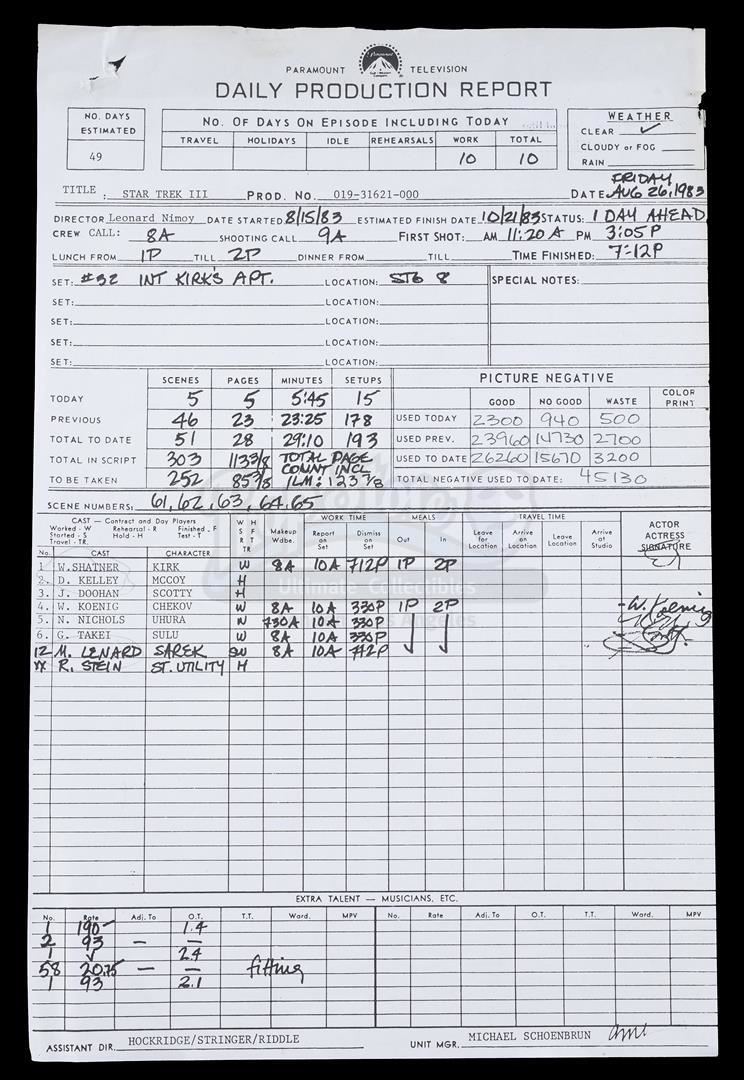 PARAMOUNT TELEVISION
DAILY PRODUCTION REPORT
NO. DAYS ESTIMATED
49
NO. OF DAYS ON EPISODE INCLUDING TODAY
TRAVEL HOLIDAYS IDLE REHEARSALS WORK TOTAL
10 10
WEATHER
CLEAR ✓
CLOUDY or FOG
RAIN
TITLE : STAR TREK III PROD. NO. 019-31621-000 DATE FRIDAY AUG 26, 1983
DIRECTOR Leonard Nimoy DATE STARTED 8/15/83 ESTIMATED FINISH DATE 10/21/83 STATUS: 1 DAY AHEAD
CREW CALL: 8A SHOOTING CALL 9A FIRST SHOT: AM 11:20 A PM 3:05 P
LUNCH FROM 1P TILL 2P DINNER FROM TILL TIME FINISHED: 7:12P
SET: #32 INT KIRK'S APT. LOCATION: STG 8 SPECIAL NOTES:
SET: LOCATION:
SET: LOCATION:
SET: LOCATION:
SET: LOCATION:
SCENES PAGES MINUTES SETUPS PICTURE NEGATIVE
GOOD NO GOOD WASTE COLOR PRINT
TODAY 5 5 5:45 15 USED TODAY 2300 940 500
PREVIOUS 46 23 23:25 178 USED PREV. 23960 14730 2700
TOTAL TO DATE 51 28 29:10 193 USED TO DATE 26260 15670 3200
TOTAL IN SCRIPT 303 113 3/8 TOTAL PAGE COUNT INCL ILM: 123 7/8
TO BE TAKEN 252 85 3/8 TOTAL NEGATIVE USED TO DATE: 45130
SCENE NUMBERS: 61, 62, 63, 64, 65
CAST — Contract and Day Players
Worked - W Rehearsal - R Finished - F
Started - S Hold - H Test - T
Travel - TR.
W H S F R T TR
Makeup Wdbe.
WORK TIME
Report on Set Dismiss on Set
MEALS
Out In
TRAVEL TIME
Leave for Location Arrive on Location Leave Location Arrive at Studio
ACTOR ACTRESS SIGNATURE
No. CAST CHARACTER
1 W.SHATNER KIRK W 8A 10A 712P 1P 2P
2. D. KELLEY MCCOY H
3. J. DOOHAN SCOTTY H
4. W. KOENIG CHEKOV W 8A 10A 330P 1P 2P W. Koenig
5. N. NICHOLS UHURA W 730A 10A 330P
6. G. TAKEI SULU W 8A 10A 330P
12 M. LENARD SAREK SW 8A 10A 712P
R. STEIN ST. UTILITY H
Ultimate Collectibles
Los Angeles
EXTRA TALENT — MUSICIANS, ETC.
No. Rate Adj. To O.T. T.T. Ward. MPV No. Rate Adj. To O.T. T.T. Ward. MPV
1 190- 1.4
2 93 — —
1 ✓ 2.4
58 20.75 — — fitting
1 93 2.1
ASSISTANT DIR. HOCKRIDGE/STRINGER/RIDDLE UNIT MGR. MICHAEL SCHOENBRUN